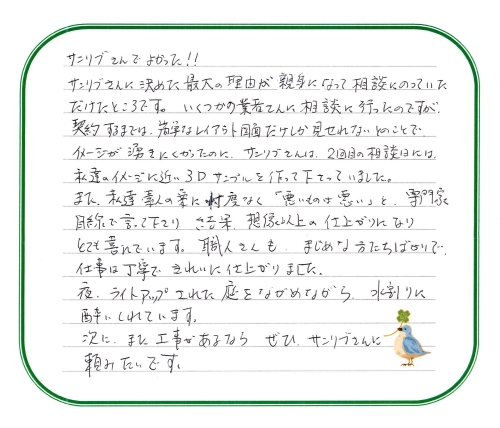 サンリブさんでよかった!!
サンリブさんに決めた最大の理由が親身になって相談にのっていた
だけたところです。いくつかの業者さんに相談に行ったのですが、
契約するまでは、簡単なレイアウト図面だけしか見せれないとのことで、
イメージが湧きにくかったのに、サンリブさんは、2回目の相談日には、
私達のイメージに近い3Dサンプルを作って下さっていました。
また、私達素人の案に忖度なく「悪いものは悪い」と、専門家
目線で言って下さり 結果、想像以上の仕上がりになり
とても喜んでいます。職人さんも、まじめな方たちばかりで、
仕事は丁寧で きれいに仕上がりました。
夜、ライトアップされた庭をながめながら、水割りに
酔いしれています。
次に、また工事があるなら ぜひ、サンリブさんに
頼みたいです。